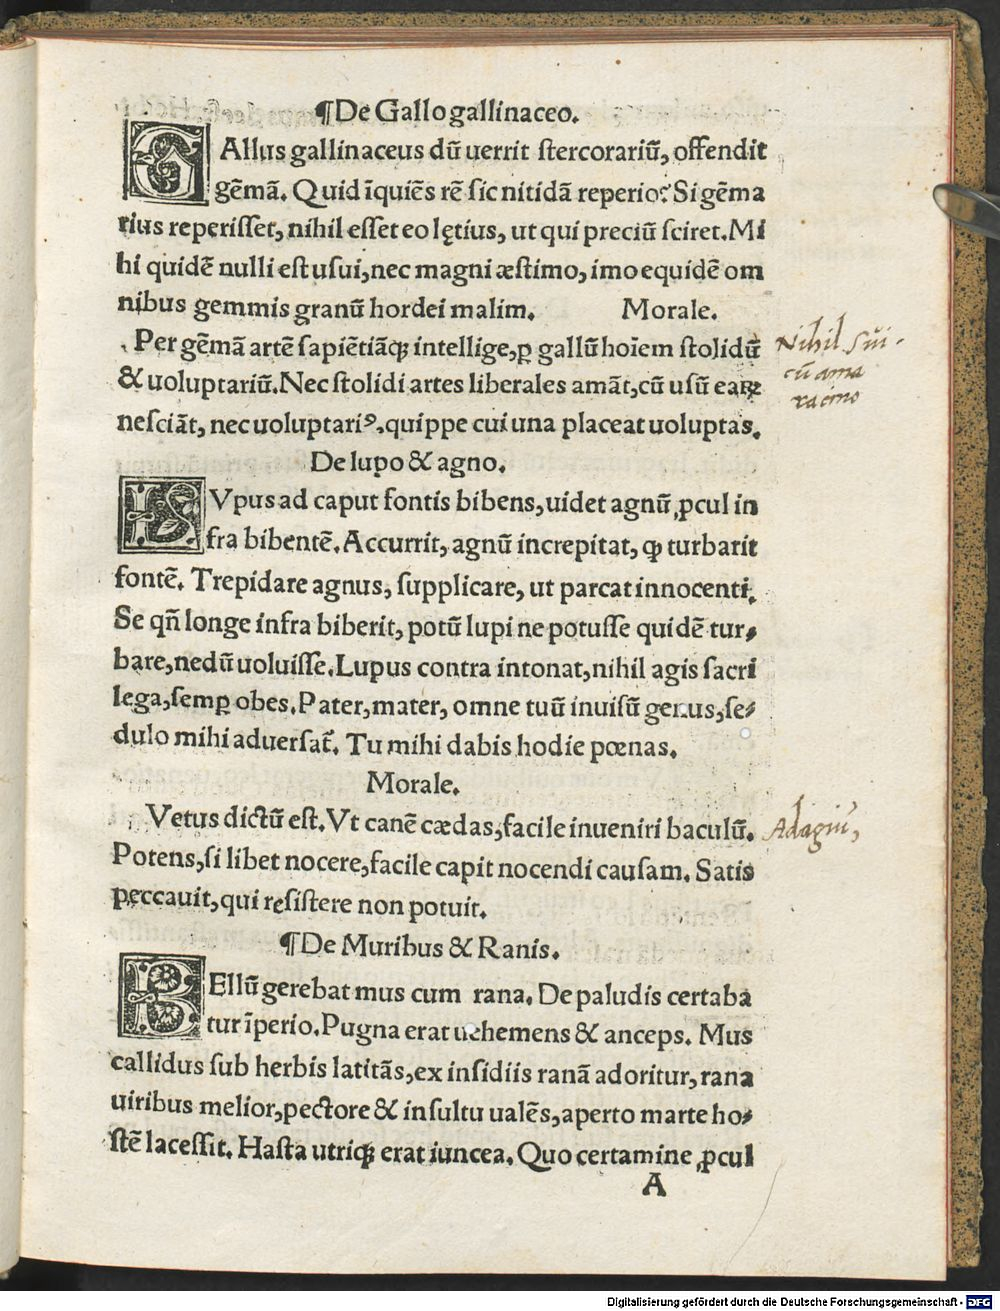 ¶De Gallo gallinaceo.
GAllus gallinaceus dũ uerrit stercorariũ, offendit
gẽmã. Quid ĩquiẽs rẽ sic nitidã reperio? Si gẽma
rius reperisset, nihil esset eo lętius, ut qui preciũ sciret. Mi
hi quidẽ nulli est usui, nec magni æstimo, imo equidẽ om
nibus gemmis granũ hordei malim. Morale.
Per gẽmã artẽ sapiẽtiãq; intellige, ꝑ gallũ hoĩem stolidũ
& uoluptariũ. Nec stolidi artes liberales amãt, cũ usũ eaꝝ
nesciãt, nec uoluptariꝰ, quippe cui una placeat uoluptas.
Nihil Sui
cũ ama
racino
De lupo & agno.
LVpus ad caput fontis bibens, uidet agnũ ꝓcul in
fra bibentẽ. Accurrit, agnũ increpitat, ꝙ turbarit
fontẽ. Trepidare agnus, supplicare, ut parcat innocenti.
Se qñ longe infra biberit, potũ lupi ne potusse quidẽ tur-
bare, nedũ uoluisse. Lupus contra intonat, nihil agis sacri
lega, semꝑ obes. Pater, mater, omne tuũ inuisũ genus, se-
dulo mihi aduersat̃. Tu mihi dabis hodie pœnas.
Morale.
Vetus dictũ est. Vt canẽ cædas, facile inueniri baculũ.
Adagiũ,
Potens, si libet nocere, facile capit nocendi causam. Satis
peccauit, qui resistere non potuit.
¶De Muribus & Ranis.
BEllũ gerebat mus cum rana. De paludis certaba
tur ĩperio. Pugna erat uehemens & anceps. Mus
callidus sub herbis latitãs, ex insidiis ranã adoritur, rana
uiribus melior, pectore & insultu ualẽs, aperto marte ho-
stẽ lacessit. Hasta utriq; erat iuncea. Quo certamine ꝓcul
A
Digitalisierung gefördert durch die Deutsche Forschungsgemeinschaft - DFG